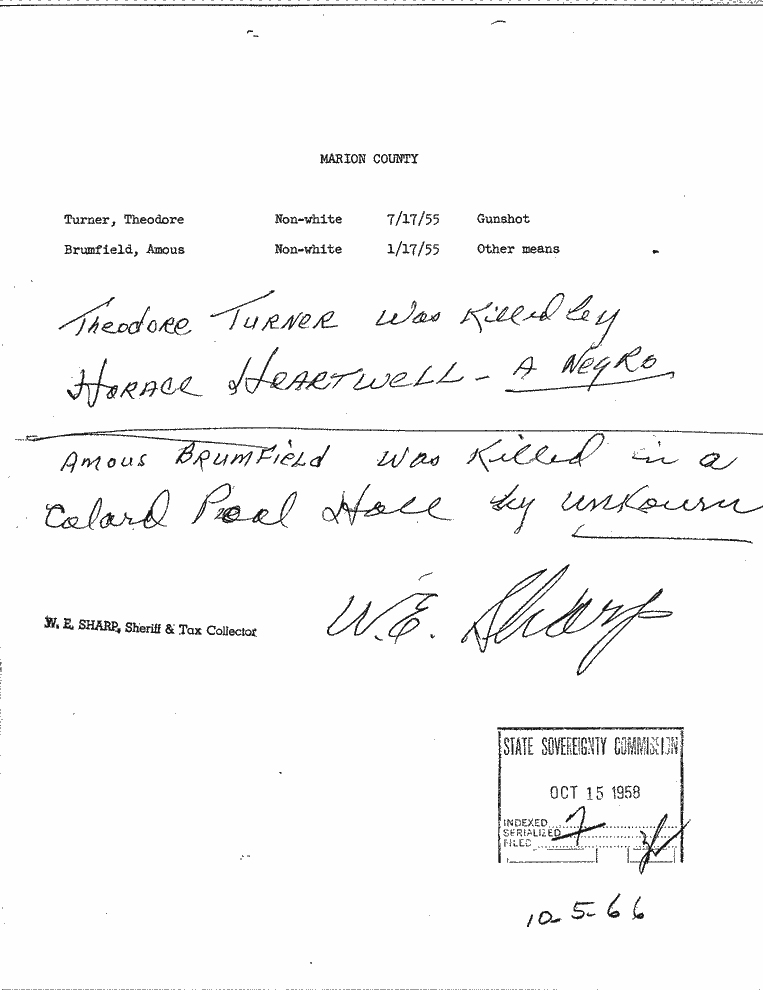 MARION COUNTY
Turner, Theodore Non-white 7/17/55 Gunshot
Brumfield, Amous Non-white 1/17/55 Other means
Theodore Turner was Killed by
Horace Heartwell - A Negro
Amous Brumfield was Killed in a
Colard Pool Hall by unkown
W. E. SHARP, Sheriff & Tax Collector
W.E. Sharp
STATE SOVEREIGNTY COMMISSION
OCT 15 1958
INDEXED
SERIALIZED 7
FILED
10-5-66